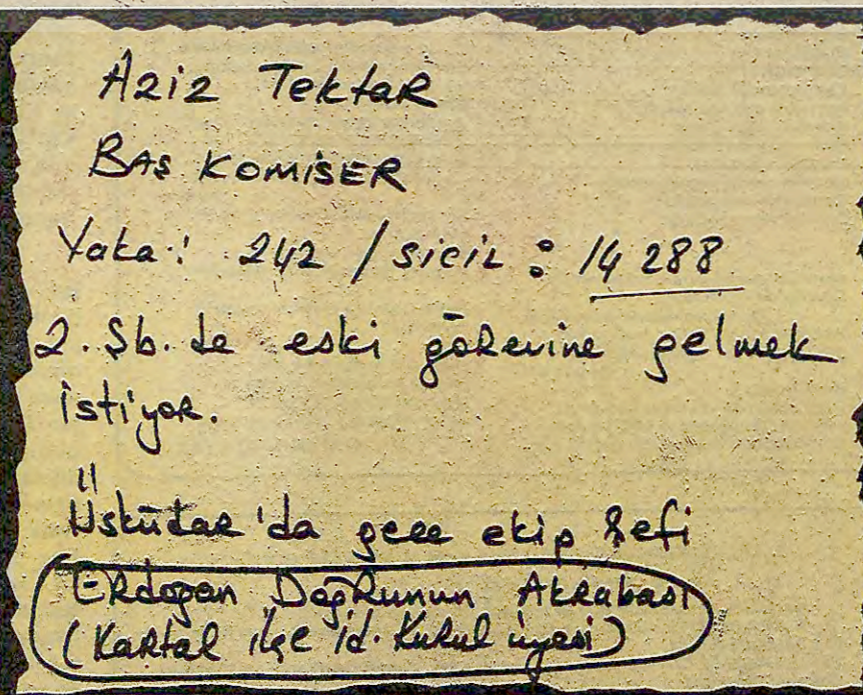 Aziz Tektar
BAŞ KOMİSER
Yaka: 242 / sicil : 14 288
2. Şb. de eski görevine gelmek
istiyor.
Üsküdar'da gece ekip şefi
Erdoğan Doğrunun Akrabası
(Kartal ilçe id. Kurul üyesi)